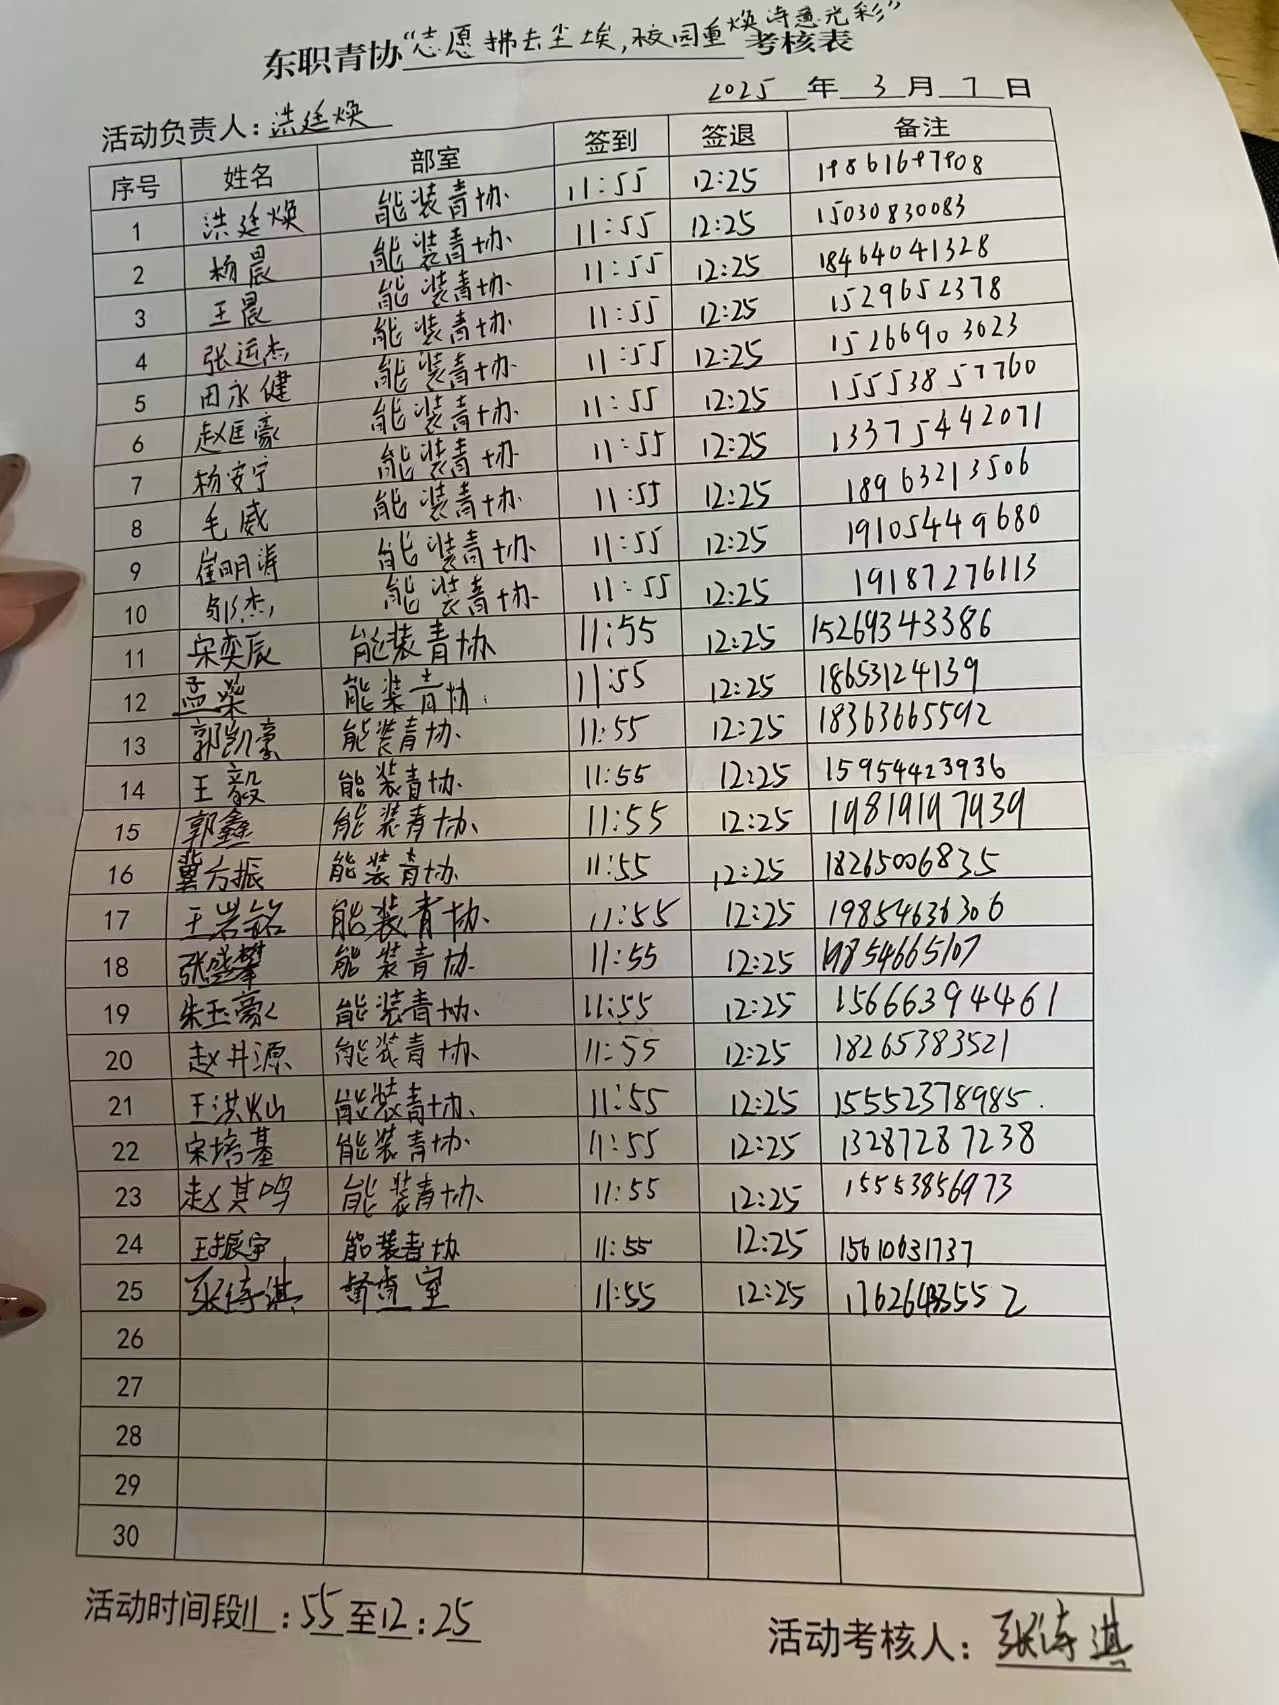 东职青协“志愿拂去尘埃,校园重焕诗意光彩”考核表
2025 年 3 月 7 日
活动负责人:洪廷焕
序号 姓名 部室 签到 签退 备注
1 洪廷焕 能装青协 11:55 12:25 19861697908
2 杨晨 能装青协 11:55 12:25 15030830083
3 王晨 能装青协 11:55 12:25 18464041328
4 张运杰 能装青协 11:55 12:25 1529652378
5 田永健 能装青协 11:55 12:25 15266903023
6 赵匡豪 能装青协 11:55 12:25 15553857760
7 杨安宁 能装青协 11:55 12:25 13375442071
8 毛威 能装青协 11:55 12:25 18963213506
9 崔明涛 能装青协 11:55 12:25 19105449680
10 邹杰 能装青协 11:55 12:25 19187276113
11 宋奕辰 能装青协 11:55 12:25 15269343386
12 孟燊 能装青协 11:55 12:25 18653124139
13 郭凯豪 能装青协 11:55 12:25 18363665592
14 王毅 能装青协 11:55 12:25 15954423936
15 郭鑫 能装青协 11:55 12:25 19819197939
16 冀方振 能装青协 11:55 12:25 18265006835
17 王岩铭 能装青协 11:55 12:25 19854636306
18 张盛攀 能装青协 11:55 12:25 19854665107
19 朱玉豪 能装青协 11:55 12:25 15666394461
20 赵井源 能装青协 11:55 12:25 18265383521
21 王洪灿 能装青协 11:55 12:25 15552378985
22 宋培基 能装青协 11:55 12:25 13287287238
23 赵其鸣 能装青协 11:55 12:25 15553856973
24 王振宇 能装青协 11:55 12:25 15610631737
25 张诗淇 督查室 11:55 12:25
26
27
28
29
30
活动时间段11:55至12:25
活动考核人:张诗淇